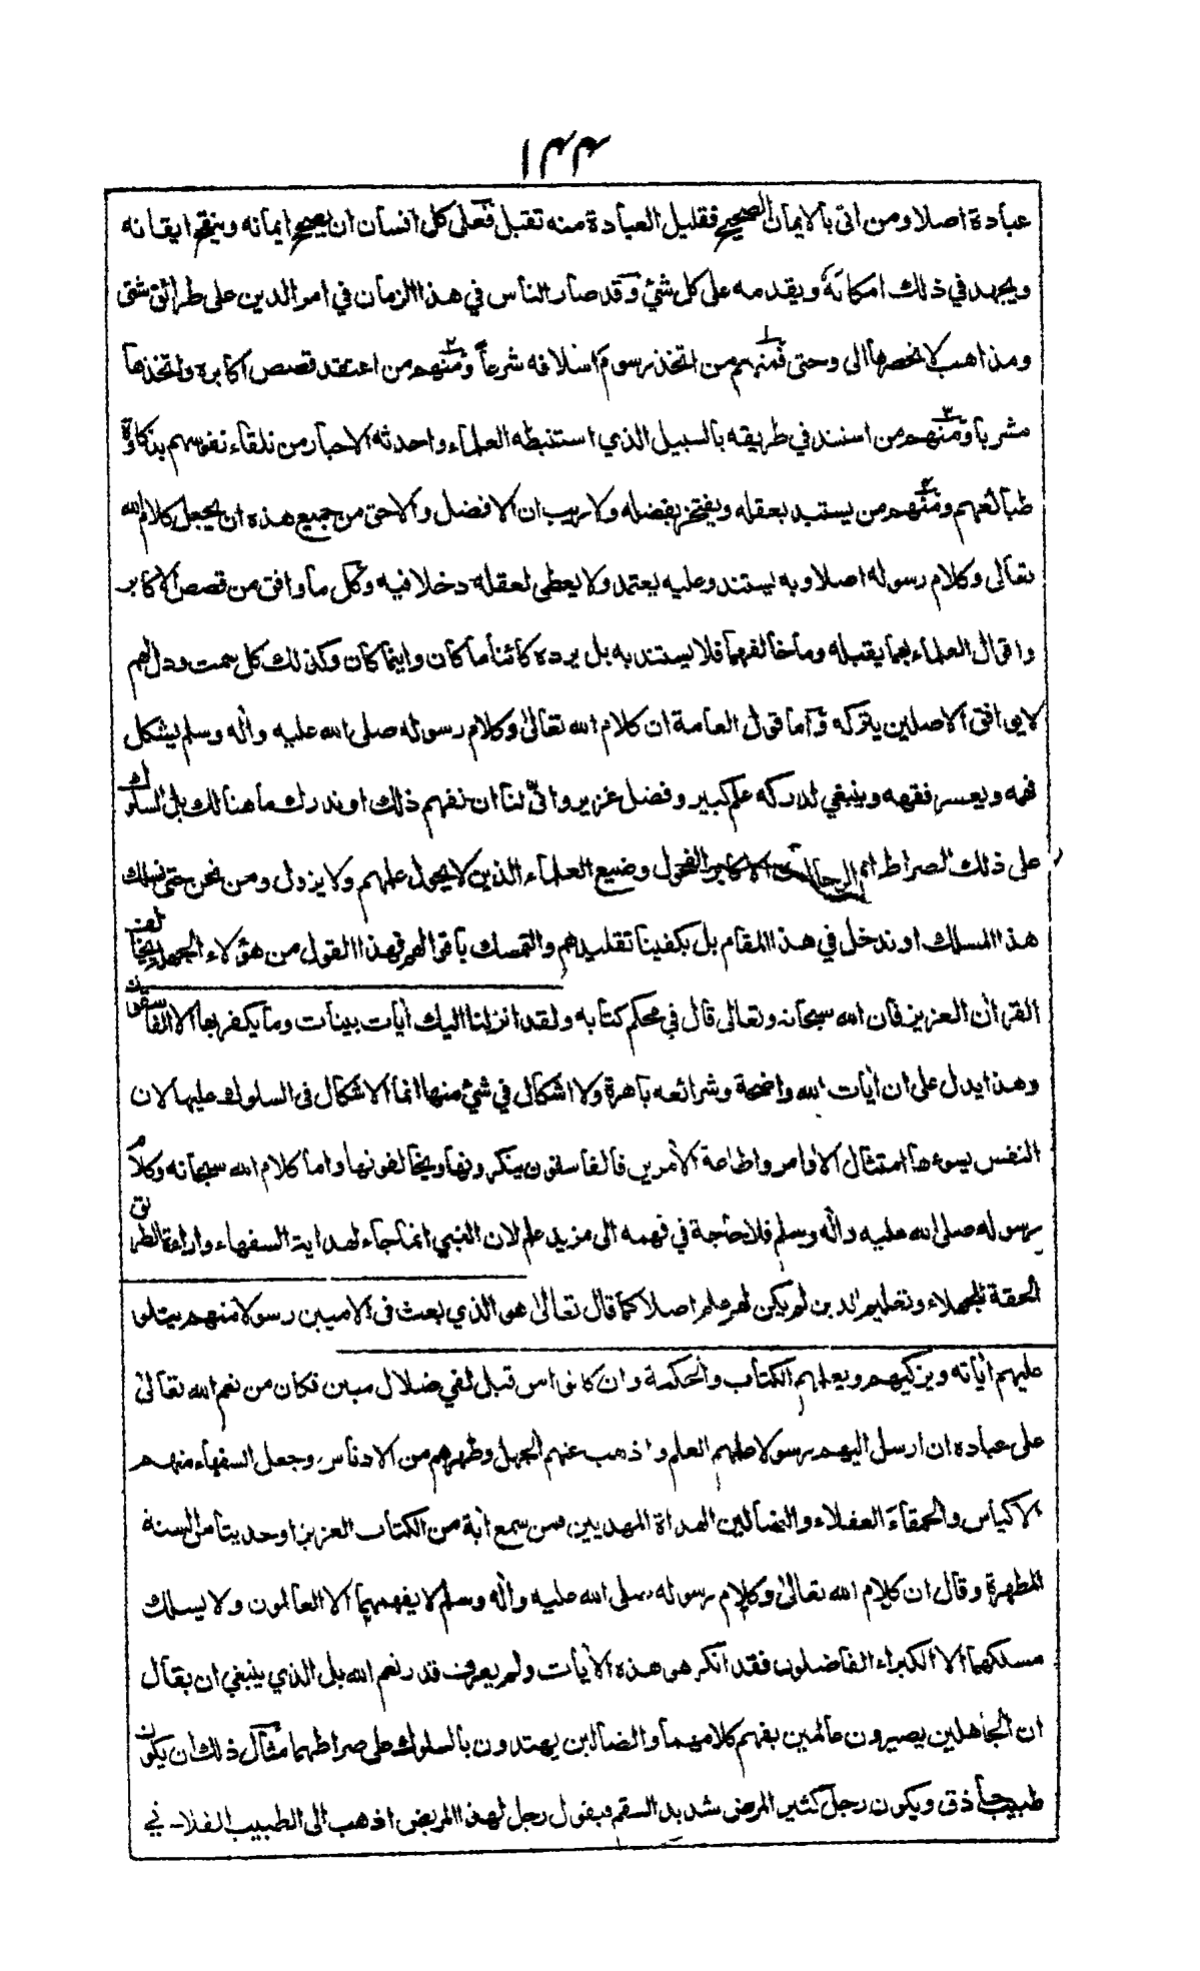 ١٣٤
عبادة اصلا ومن اتى بالايمان الصحيح فقليل العبادة منه تقبل فعلى كل انسان ان يصحح ايمانه وينقح ايقانه
ويجهد في ذلك امكانه ويقدمه على كل شئ وقد صار الناس في هذا الزمان في امر الدين على طرائق شتى
ومذاهب لا نحصرها الى وحتى فمنهم من اتخذ رسوم اسلافه شرعاً ومنهم من اعتقد قصص اكابره واتخذها
مشربا ومنهم من استند في طريقه بالسبيل الذي استنبطه العلماء واحدثه الاحبار من تلقاء نفوسهم بذكاوة
طبائعهم ومنهم من يستبد بعقله ويفتخر بفضله ولا ريب ان الافضل والاحق من جميع هذه ان يجعل كلام الله
تعالى وكلام رسوله اصلا وبه يستند وعليه يعتمد ولا يعطى لعقله دخلا فيه وكل ما وافق من قصص الاكابر
واقوال العلماء بهما يقبله وما خالفهما فلا يستند به بل يرده كائنا ما كان واينما كان وكذلك كل سمت ودل لهم
لا يوافق الاصلين يتركه وأما قول العامة ان كلام الله تعالى وكلام رسوله صلى الله عليه واله وسلم يشكل
فهمه ويعسر فقهه وينبغي لدركه علم كبير وفضل غزير وانى لنا ان نفهم ذلك او ندرك ما هنالك بل السلوك
على ذلك الصراط انما الرجالات الاكابر الفحول وضيع العلماء الذين لا يحول علمهم ولا يزول ومن نحن حتى نسلك
هذا المسلك او ندخل في هذا المقام بل يكفينا تقليدهم والتمسك باقوالهم فهذا القول من هؤلاء الجهلة يخالف
القران العزيز فان الله سبحانه وتعالى قال في محكم كتابه ولقد انزلنا اليك أيات بينات وما يكفر بها الا الفاسقون
وهذا يدل على ان أيات الله واضحة وشرائعه باهرة ولا اشكال في شئ منها انما الاشكال فى السلوك عليها لان
النفس يسوءها امتثال الاوامر واطاعة الأمرين فالفاسقون ينكرونها ويخالفونها واما كلام الله سبحانه وكلام
رسوله صلى الله عليه واله وسلم فلا حاجة في فهمه الى مزيد علم لان النبي انما جاء لهداية السفهاء واراءة الطريق
الحقة للجهلاء وتعليم الذين لم يكن لهم علم اصلا كما قال تعالى هو الذي بعث فى الاميين رسولا منهم يتلوا
عليهم أياته ويزكيهم ويعلمهم الكتاب والحكمة وان كانوا من قبل لفي ضلال مبين فكان من نعم الله تعالى
على عباده ان ارسل اليهم رسولا علمهم العلم واذهب عنهم الجهل وطهرهم من الادناس وجعل السفهاء منهم
الاكياس والحمقاء العقلاء والضالين الهداة المهديين فمن سمع أية من الكتاب العزيز اوحديثا من السنة
المطهرة وقال ان كلام الله تعالى وكلام رسوله صلى الله عليه واله وسلم لا يفهمهما الا العالمون ولا يسلك
مسلكهما الا الكبراء الفاضلون فقد انكر هو هذه الأيات ولم يعرف قدر نعم الله بل الذي ينبغي ان يقال
ان الجاهلين يصيرون عالمين بفهم كلامهما والضالين يهتدون بالسلوك على صراطهما مثال ذلك ان يكون
طبيب حاذق ويكون رجل كثير المرض شديد السقم فيقول رجل لهذا المريض اذهب الى الطبيب الفلا‍ني